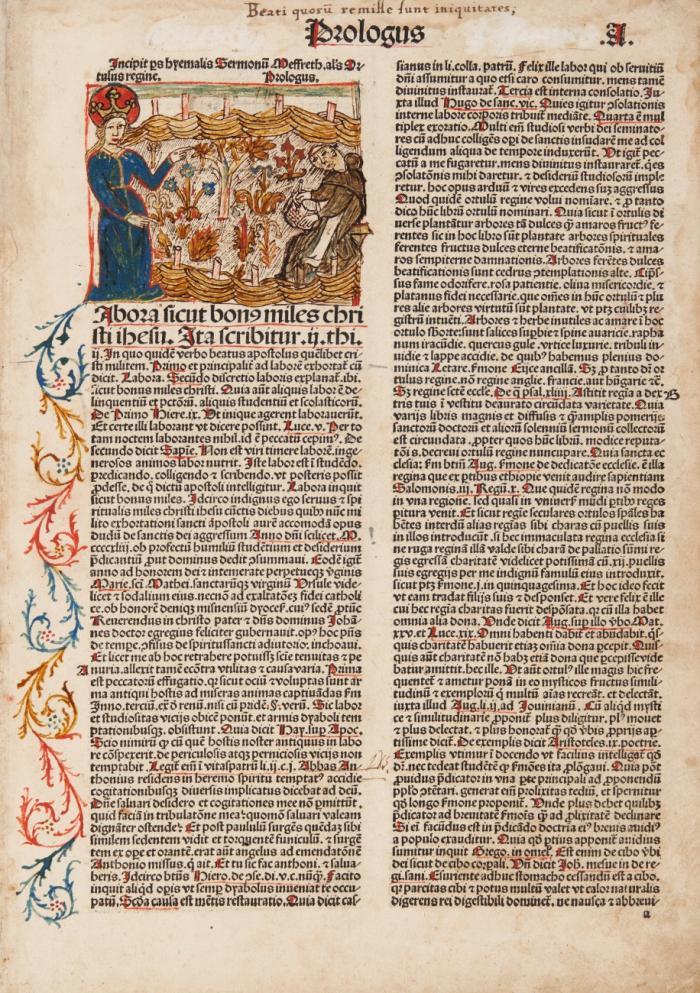 Beati quorũ remisse sunt iniquitates,
Prologus
.A.
Incipit ps hyemalis Sermonũ Meffreth. als Or-
tulus regine. Prologus.
Labora sicut bonꝰ miles chri
sti ihesu. Ita scribitur .ij. thi.
ij. In quo quidẽ verbo beatus apostolus quẽlibet cri-
sti militem. Primo et principali ad laborẽ exhortat cũ
dicit. Labora. Secũdo discretio laboris explanat ibi.
sicut bonus miles christi. Quia aũt aliquis labor ẽ de-
linquentiũ et pctõrũ. aliquis studentiũ et scolasticorũ.
De primo Hiere.ix. Ut inique agerent laborauerũt.
Et certe illi laborant vt dicere possint. Luce.v. Per to
tam noctem laborantes nihil. id ẽ peccatũ cepimꝰ. De
secundo dicit Sapiẽ. Non est viri timere laborẽ. inge-
nerosos animos labor nutrit. Iste labor est ĩ studẽdo.
predicando. colligendo et scribendo. vt posteris possit
pdesse. de q̃ dicta apostoli intelligitur. Labora inquit
sicut bonus miles. Idcirco indignus ego seruus et spi
ritualis miles christi ihesu cũctis diebus quibꝰ nũc mi
lito exhortationi sancti apostoli aurẽ accomodã opus
dudũ de sanctis dei aggressum Anno dñi scilicet.M.
ccccxliij. ob profectũ humiliũ studẽtium et desiderium
pdicantiũ put dominus dedit psummaui. Eodẽ igit
anno ad honorem dei et intemerate perpetueqꝫ vginis
Marie. scĩ Mathei. sanctarũqꝫ virginũ Vrsule vide-
licet et sodalium eius. necnõ ad exaltatõeꝫ fidei catholi
ce. ob honorẽ deniqꝫ misnensiũ dyocef. cuiꝰ sedẽ ptũc
Reuerendus in christo pater et dñs dominus Johan-
nes doctor egregius feliciter gubernauit. opꝰ hoc pñs
de tempe. pfisus de spiritussancti adiutorio. inchoaui.
Et licet me ab hoc retrahere potuissꝫ scie tenuitas et pe
nuria. allexit tamẽ ecõtra vtilitas et causa varia. Prima
est peccatorũ effugatio. qꝛ sicut ociũ et voluptas sunt ar
ma antiqui hostis ad miseras animas captiuãdas fm
Inno.terciũ. ex̃ de renũ. nisi cũ pridẽ. §. verũ. Sic labor
et studiositas vicijs obicẽ ponũt. et armis dyaboli tem
ptationibusqꝫ. obsistunt. Quia dicit Hay. sup Apoc.
Scio nimirũ qꝫ ciũ que hostes noster antiquus in labo
re cõsperxerit. de periculosis atqꝫ perniciosis vicijs non
temptabit. Legit eñ ĩ vitaspatrũ li.ij.c.j. Abbas An-
thonius residens in heremo spiritu temptatꝰ accidie
cogitationibusqꝫ diuersis implicatus dicebat ad deũ.
Dñe saluari desidero et cogitationes mee nõ pmittũt.
quid faciã in tribulatõne mea? quomõ saluari valeam
dignãter ostende? Et post paululũ surgẽs quẽdaꝫ sibi
similem sedentem vidit et torquentẽ funiculũ. et surgẽ
tem ex ope et orantẽ. erat aũt angelus ad emendatõnẽ
Anthonio missus. q̃ ait. Et tu sic fac anthoni. et salua-
beris. Idcirco btũs Hiero. de pse. di.v.c. nũqꝫ. Facito
inquit aliqd opis vt semp dyabolus inueniat te occu-
patũ. Scda causa est mẽtis restauratio. Quia dicit cas-
sianus in li. colla. patrũ. Felix ille labor qui ob seruitiũ
dñi assumitur a quo etsi caro consumitur. mens tamẽ
diuinitus instaurat. Tercia est interna consolatio. Iu-
xta illud Hugo de sanc. vic. Quies igitur psolationis
interne labore corporis tribuit mediãte. Quarta ẽ mul
tiplex exoratio. Multi eñ studiosi verbi dei seminato-
res cũ adhuc colligẽs opi de sanctis insudarẽ me ad col
ligendum aliqua de tempore induxerũt. Vt igit pec-
catũ a me fugaretur. mens diuinitus instauraret. qes
psolatõnis mihi daretur. et desideriũ studiosorũ imple-
retur. hoc opus arduũ et vires excedens suꝫ aggressus
Quod quidẽ ortulũ regine volui noĩare. et p tanto
dico hũc librũ ortulũ nominari. Quia sicut ĩ ortulis di
uerse plantãtur arbores tã dulces qꝫ amaros fructꝰ fe-
rentes sic in hoc libro sũt plantate arbores spirituales
ferentes fructus dulces eterne beatificatõnis. et ama-
ros sempiterne damnationis. Arbores ferẽtes dulces
beatificationis sunt cedrus ptemplationis alte. Cips-
sus fame odorifere. rosa patientie. oliua misericordie. et
platanus fidei necessarie. que om̃es in hũc ortulũ et plu
res alie arbores virtutũ sunt plantate. vt ptꝫ cuilibꝫ re-
gistrũ intuẽti. Arbores et herbe inutiles ac amare ĩ hoc
ortulo sũt hee: sunt salices supbie et spine auaricie. rapha
num iracũdie. quercus gule. vrtice luxurie. tribuli in-
uidie et lappe accidie. de quibꝰ habemus plenius do-
minica Letare. fmone Eijce ancillã. Sꝫ p tanto dñ or
tulus regine. nõ regine anglie. francie. aut hũgarie et̃.
Sꝫ regine scẽ eccle. De q̃ psal.xliiij. Astitit regia a dex
tris tuis ĩ vestitu deaurato circũdata varietate. Quia
varijs libris magnis et diffusis et qꝫ amplis pomerijs
sanctorũ doctorũ et aliorũ solenniũ sermonũ collectorũ
est circundata. ppter quos hũc librũ. modice reputa-
tõis. decreui ortulũ regine nuncupare. Quia sancta ec
clesia. fm btm̃ Aug. fmone de dedicatõe ecclesie. ẽ illa
regina que ex ptibus ethiopie venit audire sapientiam
Salomonis.iij. Regũ.x. Que quidẽ regina nõ modo
in vna regione. sed quasi in vniuersꝰ mũdi ptibꝰ repe-
pitura venit. Et sicut regie seculares ortulos spãles ha
bẽtes interdũ alias regias sibi charas cũ puellis suis
in illos introducũt. si hec immaculata regina ecclesia si
ne ruga regina illã valde sibi charã de pallatio sũmi re-
gis egressã charitatẽ videlicet potissimã cũ.xij. puellis
suis egregijs per me indignũ famulũ eius introduxit.
sicut ptꝫ fmone.j. in quinquagesima. Et hoc ideo fecit
vt eam tradat filijs suis et despsonset. Et vere felix ẽ ille
cui hec regia charitas fuerit despõsata. qꝛ cũ illa habet
omnia alia dona. Vnde dicit Aug. sup illo vho Mat.
xxv. et Luce.xix. Omni habenti dabit et abũdabit. q̃s-
quis charitatẽ habuerit etiaꝫ om̃ia dona pcepit. Quis-
quis aũt charitatẽ nõ habꝫ etiã dona que pcepisse vide
batur amittit. hec ille. Vt aũt ortulꝰ ille magis hic fre-
quentet et ametur ponã in eo mysticos fructus simili-
tudinũ et exemplorũ qꝫ multũ aĩas recreãt. et delectãt.
iuxta illud Aug.li.ij. ad Jouinianũ. Cũ aliqd mysti
ce et similitudinarie pponit plus diligitur. plꝰ mouet
et plus delectat. et plus honorat qꝫ qd vbis pprijs ap-
tissime dicit. De exemplis dicit Aristoteles.ix. poetrie.
Exemplis vtimur ĩ docendo vt facilius intelligat qd
dr̃. nec tedeat studẽte qꝫ ẽ mõs ita. plõgani. Quia põt
puidus pdicator in vna pte principali ad pponendũ
pplo ptẽtari. generat em̃ prolixitas tediũ. et spernitur
qd longo fmone proponit. Vnde plus debet quilibꝫ
pdicator ad breuitatẽ fmõis qꝫ ad plixitatẽ declinare
Si em̃ facũdus est in pdicãdo doctria eiꝰ breuis audi
a populo exauditur. Quia qd ptius apponit auidius
sumitur inquit Grego. in omel. Est enim de cibo vbi
dei sicut de cibo corpali. Vñ dicit Joh. mesue in de re-
gi. sani. Esuriente adhuc stomacho cessandũ est a cibo.
qꝛ parcitas cibi et potus multũ valet vt calor naturalis
digerens rei digestibili dominet. ne nausea et abbreui-
a